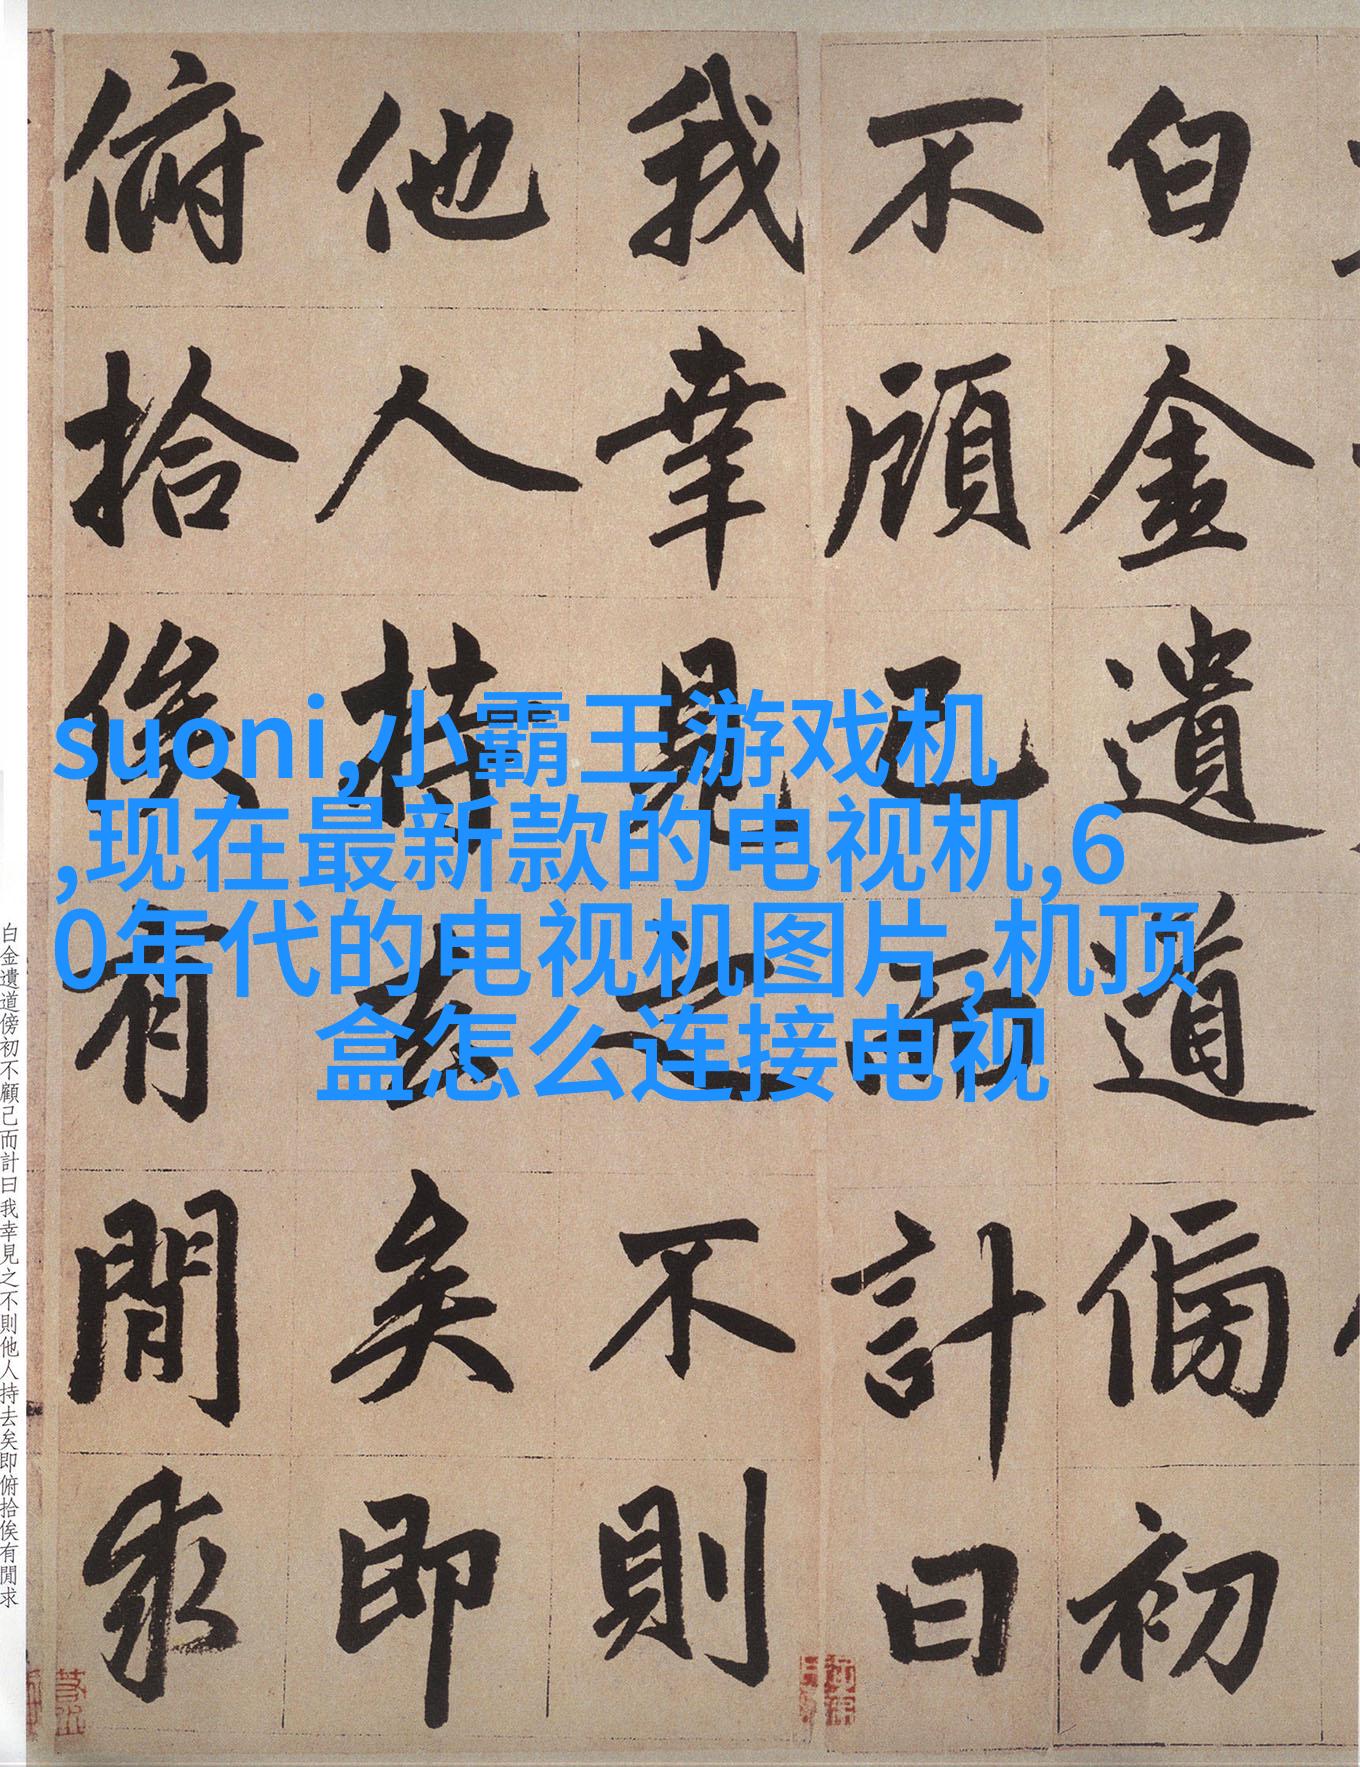 白金遺道傍初
不顧己而計曰
我幸見之不則
他人持去矣即
俯拾俟有閒求
suoni,小霸王游戏机
,现在最新款的电视机,6
0年代的电视机图片,机顶
盒怎么连接电视
白金遺道傍初不顧己而計曰我幸見之不則他人持去矣即俯拾俟有閒求